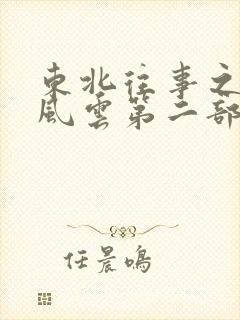 東北往事之
風雲第二部
任晨鳴